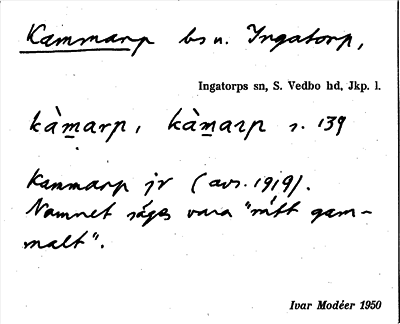 Kammarp bs n. Ingatorp,
Ingatorps sn, S. Vedbo hd, Jkp. l.
kàm̲arp, kàm̲arp s. 139
Kammarp jr (avs. 1919).
Namnet säges vara "rätt gam-
malt".
Ivar Modéer 1950